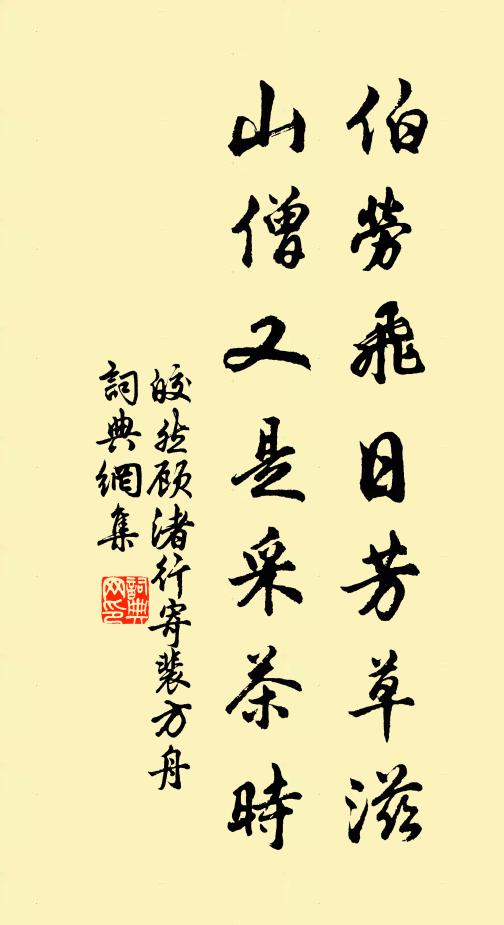 伯勞飛日芳草滋
山僧又是采茶時
皎然顾渚行寄裴方舟
詞典網集
詞典网印